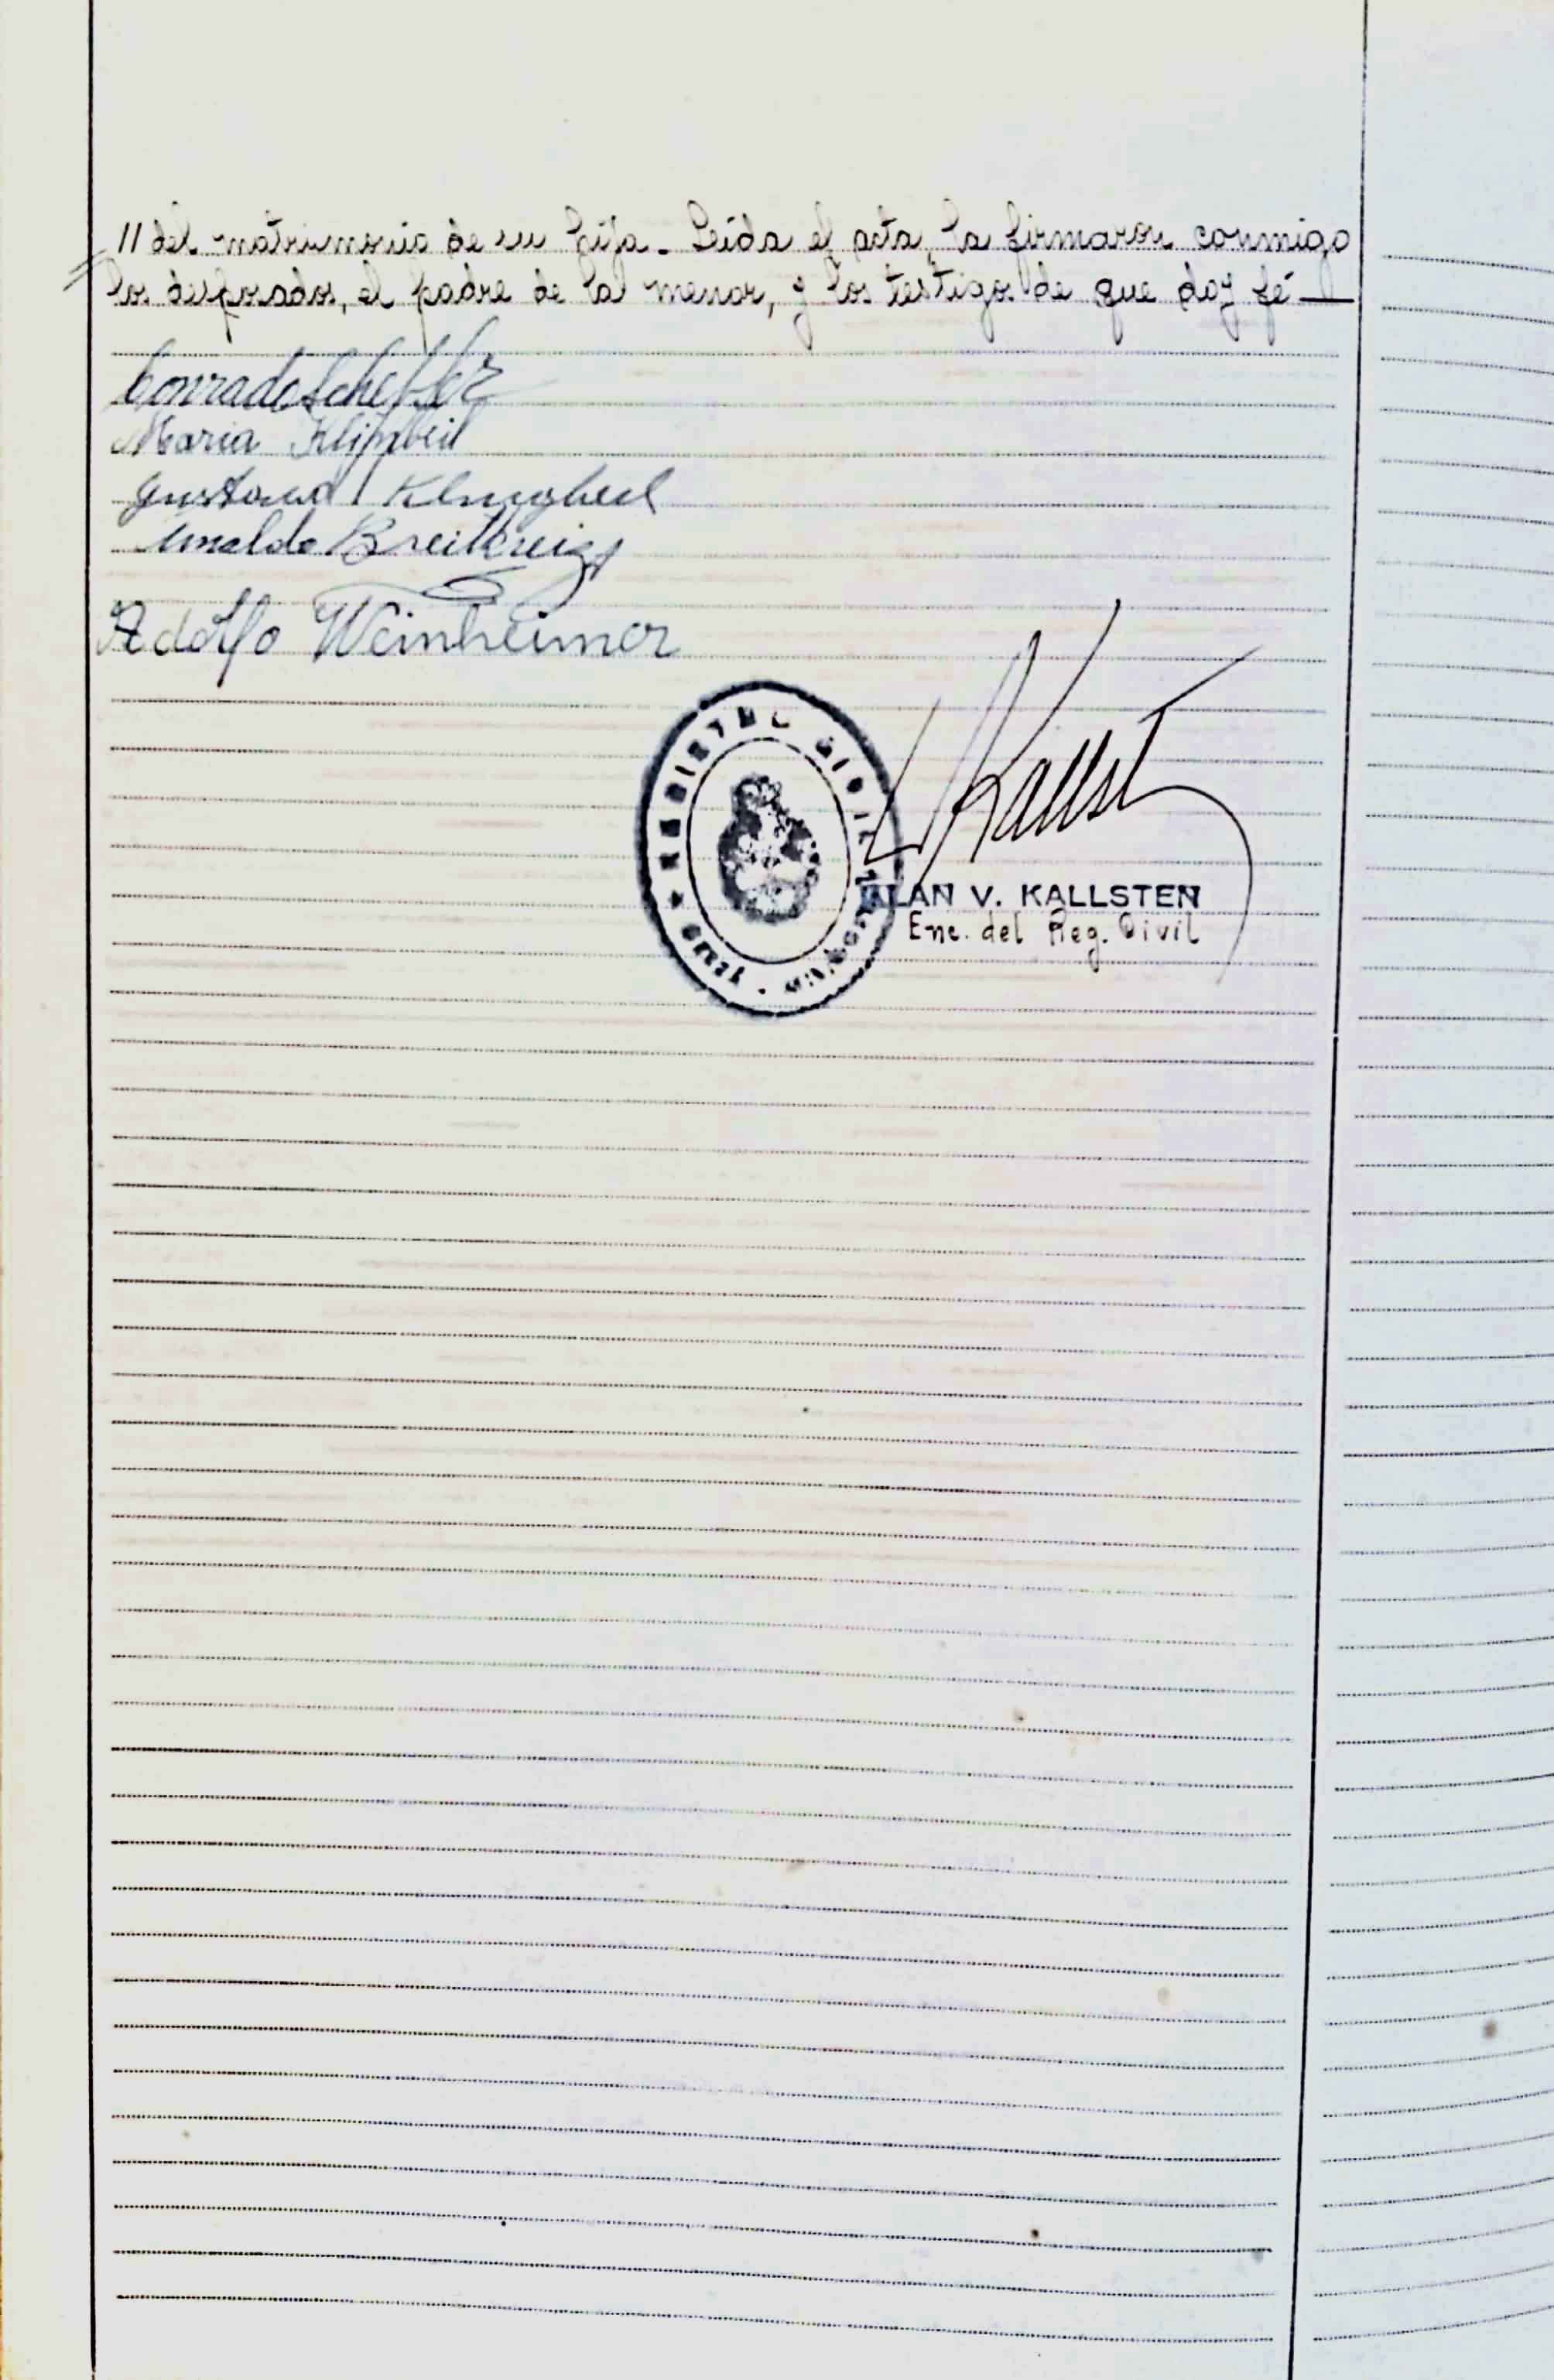 // del matrimonio de su hija. Leída el acta, la firmaron conmigo
los desposados, el padre de la menor, y los testigos de que doy fé —
Conrado Scheffer
Maria Klingbeil
Gustavo Klingbeil
Arnaldo Breitkreizs
Adolfo Weinheimer
REGISTRO CIVIL
Kallst
ALAN V. KALLSTEN
Enc. del Reg. Civil